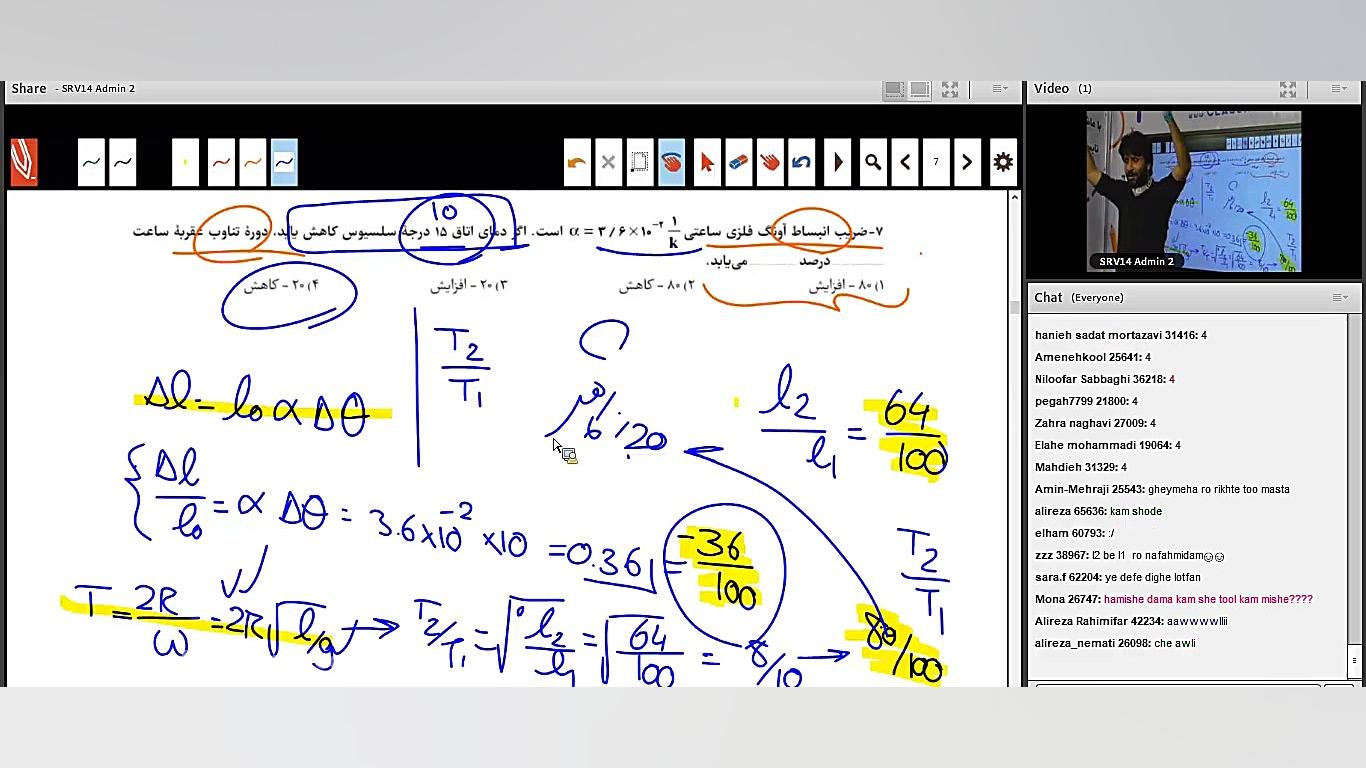 Share - SRV14 Admin 2
7
10
۷-ضریب انبساط آونگ فلزی ساعتی α = ۳/۶×۱۰⁻² 1/k است. اگر دمای اتاق ۱۵ درجهٔ سلسیوس کاهش یابد، دورهٔ تناوب عقربهٔ ساعت
........ درصد ........ می‌یابد.
۱) ۸۰ - افزایش
۲) ۸۰ - کاهش
۳) ۲۰ - افزایش
۴) ۲۰ - کاهش
T2/T1
Δl = l₀ α Δθ
%20
l2/l1 = 64/100
Δl/l₀ = α Δθ = 3.6×10⁻² ×10 = 0.36 = -36/100
T2/T1
T = 2R/ω = 2R√l/g → T2/T1 = √l2/l1 = √64/100 = 8/10 → 80/100
Video (1)
SRV14 Admin 2
Chat (Everyone)
hanieh sadat mortazavi 31416: 4
Amenehkool 25641: 4
Niloofar Sabbaghi 36218: 4
pegah7799 21800: 4
Zahra naghavi 27009: 4
Elahe mohammadi 19064: 4
Mahdieh 31329: 4
Amin-Mehraji 25543: gheymeha ro rikhte too masta
alireza 65636: kam shode
elham 60793: :/
zzz 38967: l2 be l1 ro nafahmidam
sara.f 62204: ye defe dighe lotfan
Mona 26747: hamishe dama kam she tool kam mishe????
Alireza Rahimifar 42234: aawwwwllii
alireza_nemati 26098: che awli